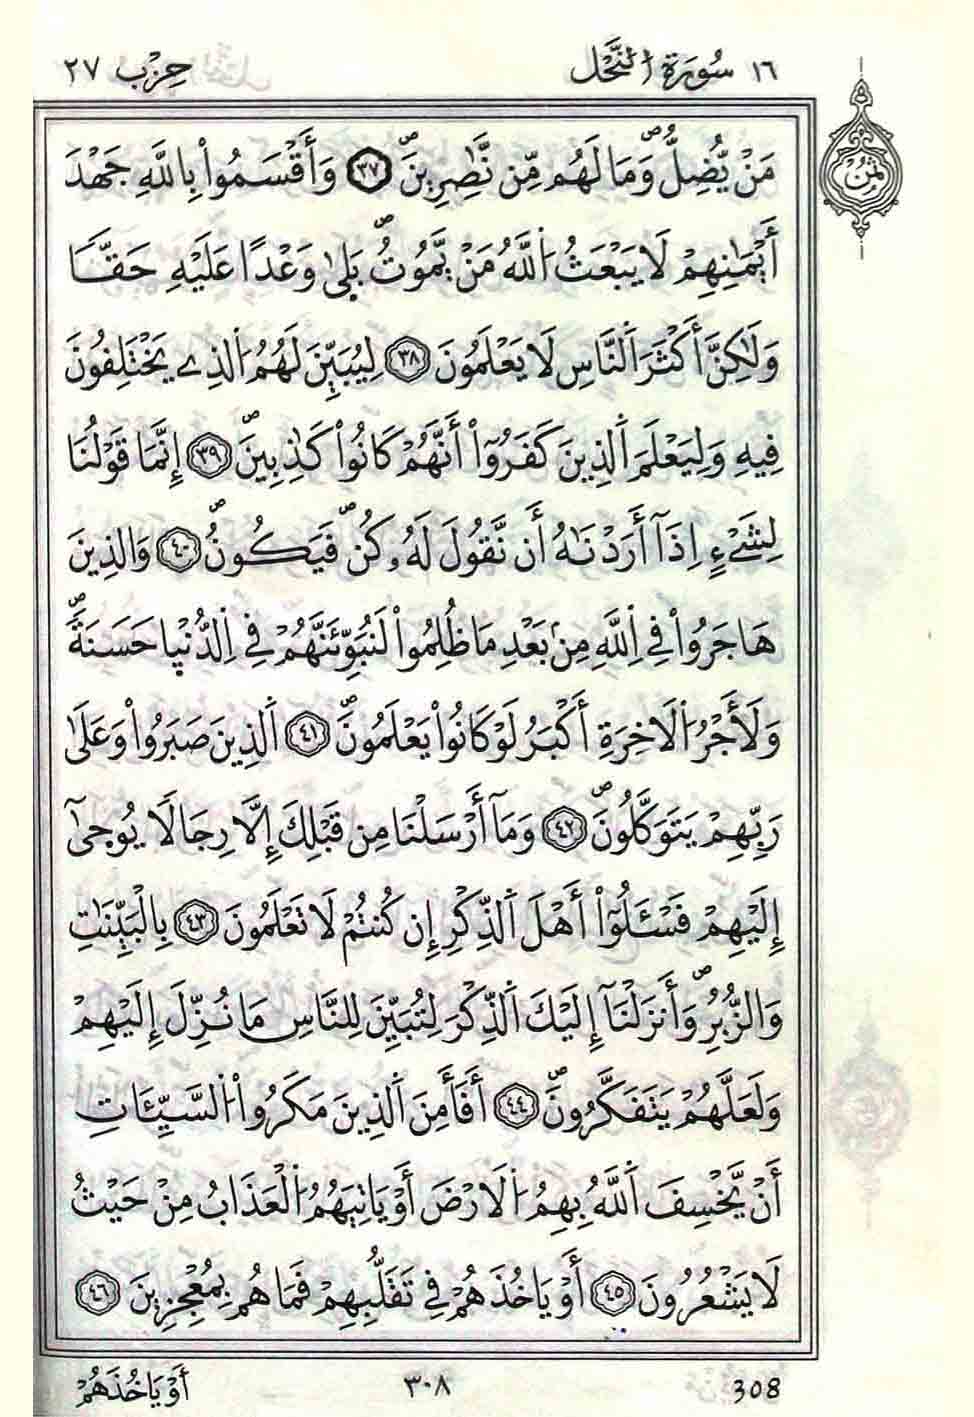 ١٦ سُورَةُ النَّحْل
حِزْب ٢٧
ثُمُن
مَنْ يُّضِلُّۖ وَمَا لَهُم مِّن نَّٰصِرِينَۖ ٣٧ وَأَقْسَمُواْ بِاللَّهِ جَهْدَ
أَيْمَٰنِهِمْ لَا يَبْعَثُ اُللَّهُ مَنْ يَّمُوتُۖ بَلَىٰ وَعْدًا عَلَيْهِ حَقّٗا
وَلَٰكِنَّ أَكْثَرَ اَلنَّاسِ لَا يَعْلَمُونَ ٣٨ لِيُبَيِّنَ لَهُمُ اُلذِے يَخْتَلِفُونَ
فِيهِ وَلِيَعْلَمَ اَلذِينَ كَفَرُوٓاْ أَنَّهُمْ كَانُواْ كَٰذِبِينَۖ ٣٩ إِنَّمَا قَوْلُنَا
لِشَےْءٍ اِذَآ أَرَدْنَٰهُ أَن نَّقُولَ لَهُۥ كُنۖ فَيَكُونُۖ ٤٠ وَالذِينَ
هَاجَرُواْ فِے اِللَّهِ مِنۢ بَعْدِ مَا ظُلِمُواْ لَنُبَوِّئَنَّهُمْ فِے اِلدُّنْيِا حَسَنَةٗۖ
وَلَأَجْرُ اُلَاخِرَةِ أَكْبَرُ لَوْ كَانُواْ يَعْلَمُونَۖ ٤١ اَلذِينَ صَبَرُواْ وَعَلَىٰ
رَبِّهِمْ يَتَوَكَّلُونَۖ ٤٢ وَمَآ أَرْسَلْنَا مِن قَبْلِكَ إِلَّا رِجَالٗا يُوحَىٰٓ
إِلَيْهِمْ فَسْـَٔلُوٓاْ أَهْلَ اَلذِّكْرِ إِن كُنتُمْ لَا تَعْلَمُونَ ٤٣ بِالْبَيِّنَٰتِ
وَالزُّبُرِۖ وَأَنزَلْنَآ إِلَيْكَ اَلذِّكْرَ لِتُبَيِّنَ لِلنَّاسِ مَا نُزِّلَ إِلَيْهِمْ
وَلَعَلَّهُمْ يَتَفَكَّرُونَۖ ٤٤ أَفَأَمِنَ اَلذِينَ مَكَرُواْ اُلسَّيِّـَٔاتِ
أَنْ يَّخْسِفَ اَللَّهُ بِهِمُ اُلَارْضَ أَوْ يَاتِيَهُمُ اُلْعَذَابُ مِنْ حَيْثُ
لَا يَشْعُرُونَ ٤٥ أَوْ يَاخُذَهُمْ فِے تَقَلُّبِهِمْ فَمَا هُم بِمُعْجِزِينَ ٤٦
أَوْ يَاخُذَهُمْ
٣٠٨
308